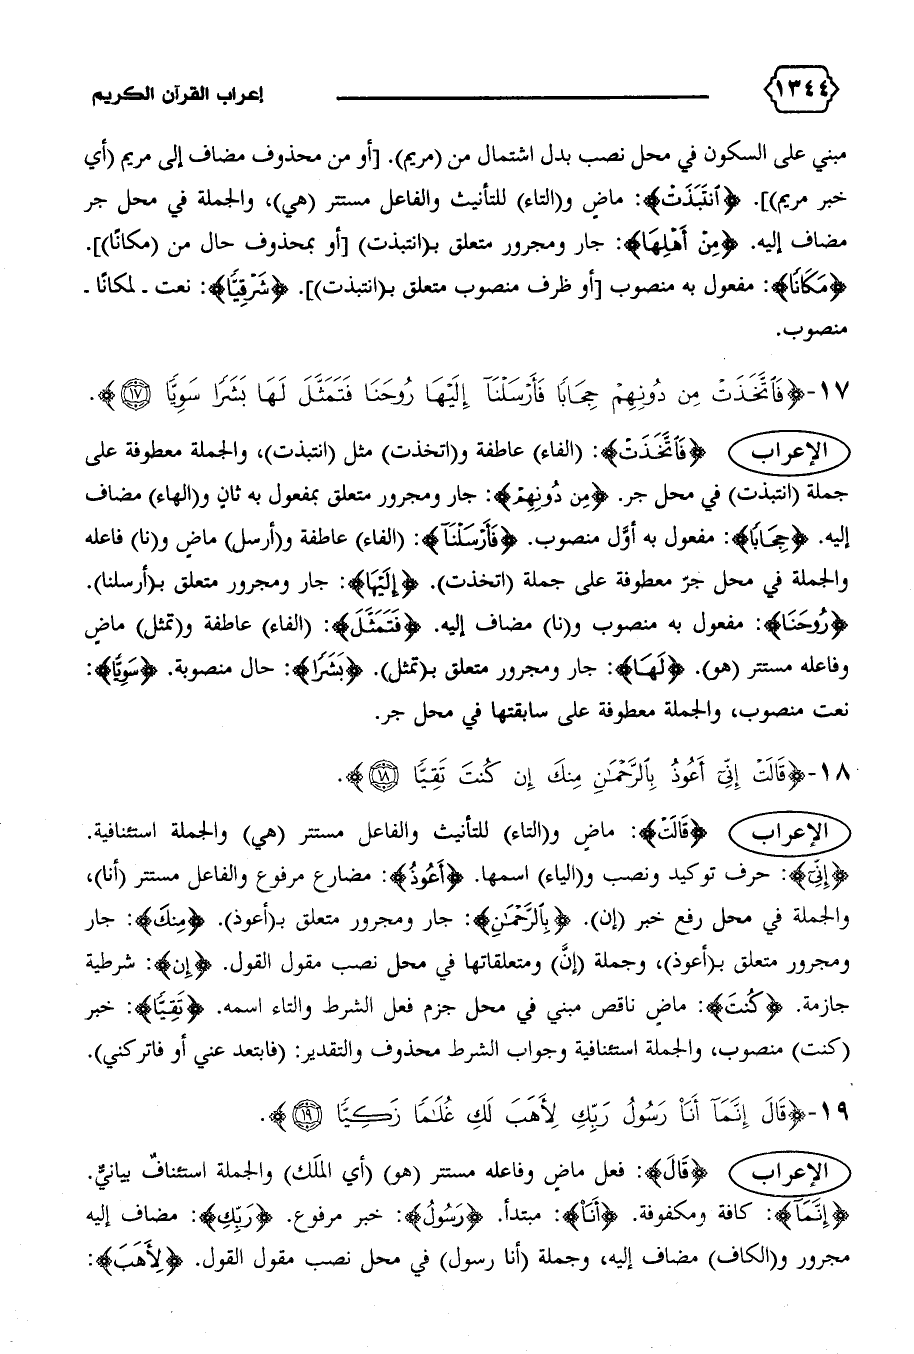 ١٣٤٤ إعراب القرآن الكريم
مبني على السكون في محل نصب بدل اشتمال من (مريم). [أو من محذوف مضاف إلى مريم (أي
خبر مريم)]. ﴿ٱنتَبَذَتْ﴾: ماضٍ و(التاء) للتأنيث والفاعل مستتر (هي)، والجملة في محل جر
مضاف إليه. ﴿مِنْ أَهْلِهَا﴾: جار ومجرور متعلق بـ(انتبذت) [أو بمحذوف حال من (مكانًا)].
﴿مَكَانًا﴾: مفعول به منصوب [أو ظرف منصوب متعلق بـ(انتبذت)]. ﴿شَرْقِيًّا﴾: نعت ـ لمكانًا ـ
منصوب.
١٧-﴿فَٱتَّخَذَتْ مِن دُونِهِمْ حِجَابًا فَأَرْسَلْنَآ إِلَيْهَا رُوحَنَا فَتَمَثَّلَ لَهَا بَشَرًا سَوِيًّا ١٧﴾.
الإعراب ﴿فَٱتَّخَذَتْ﴾: (الفاء) عاطفة و(اتخذت) مثل (انتبذت)، والجملة معطوفة على
جملة (انتبذت) في محل جر. ﴿مِن دُونِهِمْ﴾: جار ومجرور متعلق بمفعول به ثانٍ و(الهاء) مضاف
إليه. ﴿حِجَابًا﴾: مفعول به أوَّل منصوب. ﴿فَأَرْسَلْنَآ﴾: (الفاء) عاطفة و(أرسل) ماضٍ و(نا) فاعله
والجملة في محل جرّ معطوفة على جملة (اتخذت). ﴿إِلَيْهَا﴾: جار ومجرور متعلق بـ(أرسلنا).
﴿رُوحَنَا﴾: مفعول به منصوب و(نا) مضاف إليه. ﴿فَتَمَثَّلَ﴾: (الفاء) عاطفة و(تمثل) ماضٍ
وفاعله مستتر (هو). ﴿لَهَا﴾: جار ومجرور متعلق بـ(تمثل). ﴿بَشَرًا﴾: حال منصوبة. ﴿سَوِيًّا﴾:
نعت منصوب، والجملة معطوفة على سابقتها في محل جر.
١٨-﴿قَالَتْ إِنِّىٓ أَعُوذُ بِٱلرَّحْمَـٰنِ مِنكَ إِن كُنتَ تَقِيًّا ١٨﴾.
الإعراب ﴿قَالَتْ﴾: ماضٍ و(التاء) للتأنيث والفاعل مستتر (هي) والجملة استئنافية.
﴿إِنِّىٓ﴾: حرف توكيد ونصب و(الياء) اسمها. ﴿أَعُوذُ﴾: مضارع مرفوع والفاعل مستتر (أنا)،
والجملة في محل رفع خبر (إن). ﴿بِٱلرَّحْمَـٰنِ﴾: جار ومجرور متعلق بـ(أعوذ). ﴿مِنكَ﴾: جار
ومجرور متعلق بـ(أعوذ)، وجملة (إنَّ) ومتعلقاتها في محل نصب مقول القول. ﴿إِن﴾: شرطية
جازمة. ﴿كُنتَ﴾: ماضٍ ناقص مبني في محل جزم فعل الشرط والتاء اسمه. ﴿تَقِيًّا﴾: خبر
(كنت) منصوب، والجملة استئنافية وجواب الشرط محذوف والتقدير: (فابتعد عني أو فاتركني).
١٩-﴿قَالَ إِنَّمَآ أَنَا۠ رَسُولُ رَبِّكِ لِأَهَبَ لَكِ غُلَـٰمًا زَكِيًّا ١٩﴾.
الإعراب ﴿قَالَ﴾: فعل ماضٍ وفاعله مستتر (هو) (أي المَلَك) والجملة استئنافٌ بيانيٌّ.
﴿إِنَّمَآ﴾: كافة ومكفوفة. ﴿أَنَا۠﴾: مبتدأ. ﴿رَسُولُ﴾: خبر مرفوع. ﴿رَبِّكِ﴾: مضاف إليه
مجرور و(الكاف) مضاف إليه، وجملة (أنا رسول) في محل نصب مقول القول. ﴿لِأَهَبَ﴾: